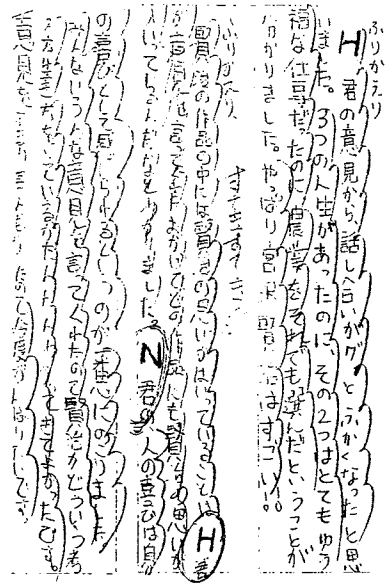 ふりかえり
H君の意見から、話し合いがグッとふかくなったと思
いました。3つの人生があったのに、その2つはとてもゆう
福な仕事だったのに農業をそれでも選んだということが
分かりました。やっぱり宮沢賢治はすごい!!
ふりかえり
賢治の作品の中には賢治の思いがはいっていることを H君
が言って どの作品にも賢治の思いが
はいって 分かりました。N君の人の喜びは自分
の喜びとして感じられるというのが一番心にのこりました。
みんないろんな意見を言ってくれたので賢治がどういう考
え方 をしているか できてよかったです。
意見を ので今度がんばりたいです。